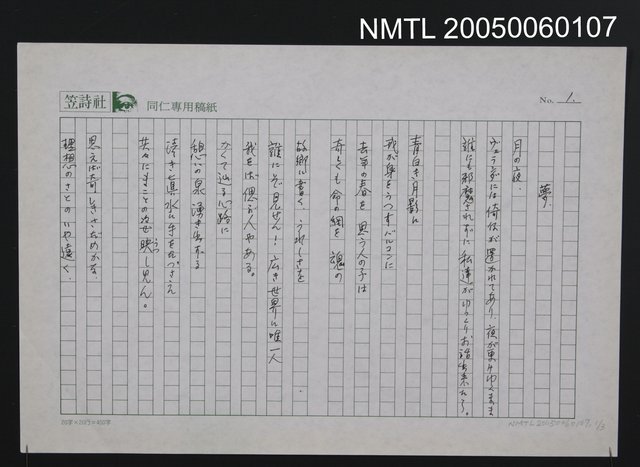 NMTL 20050060107
笠詩社
同仁専用稿紙
No. 1.
夢
月の夜.
ヴェランダには倚子が置かれてあり、夜が更けゆくまま
誰にも邪魔されずに私達がゆっくりお話出来れる。
青白き月影に
我が身をうつすバルコンに
去年の春を思う人の子は
奇くも命の綱を魂の
故郷に書く、うれしさを
誰にぞ見せん！広き世界に唯一人
我をば偲ぶ人やある。
かくて辿る心路に
憩の泉湧き出る
清き真水に手をたづさえ
共々にまことの姿映し見ん。
思えば奇しきさだめかな
理想のさとのいや遠く
20字×20行=400字
NMTL20050060107, 1/3